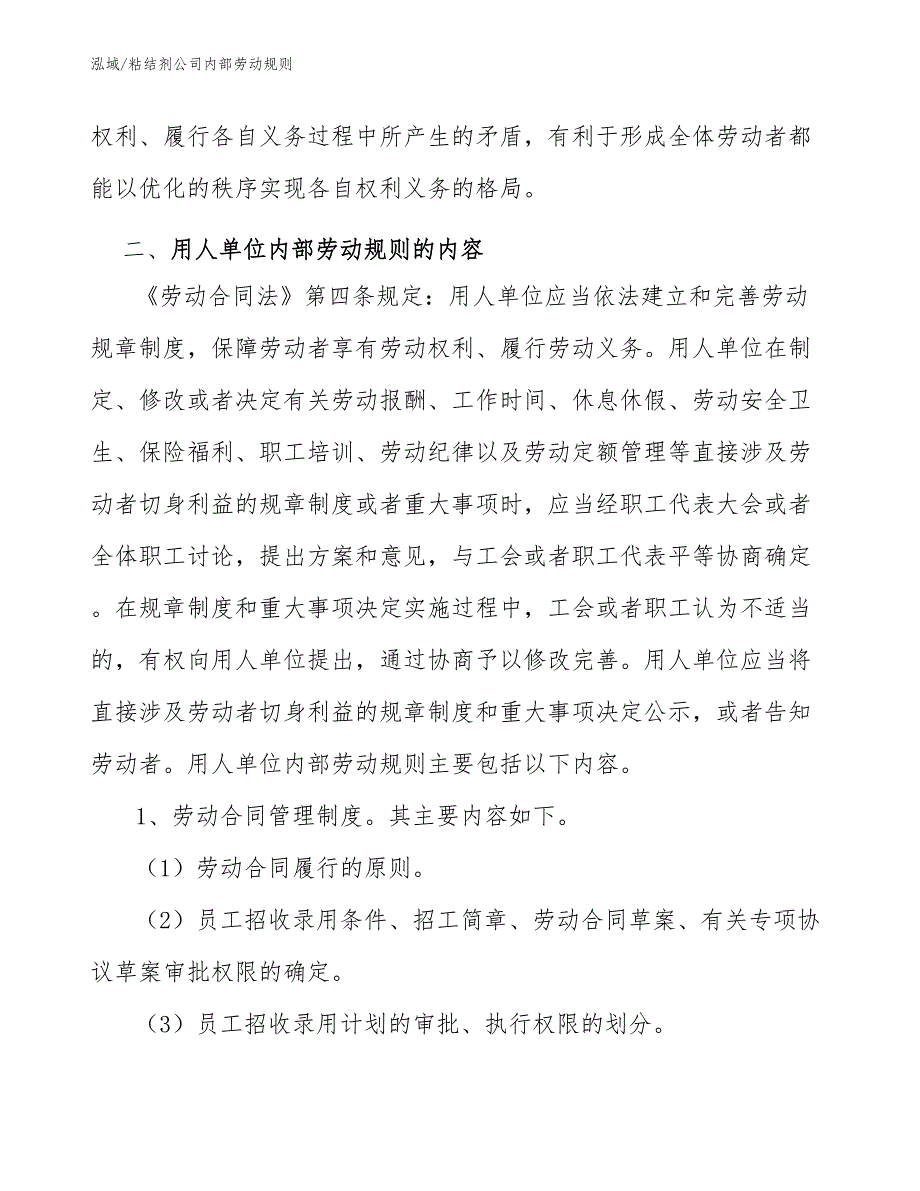 泓域/粘结剂公司内部劳动规则
权利、履行各自义务过程中所产生的矛盾，有利于形成全体劳动者都
能以优化的秩序实现各自权利义务的格局。
二、用人单位内部劳动规则的内容
《劳动合同法》第四条规定：用人单位应当依法建立和完善劳动
规章制度，保障劳动者享有劳动权利、履行劳动义务。用人单位在制
定、修改或者决定有关劳动报酬、工作时间、休息休假、劳动安全卫
生、保险福利、职工培训、劳动纪律以及劳动定额管理等直接涉及劳
动者切身利益的规章制度或者重大事项时，应当经职工代表大会或者
全体职工讨论，提出方案和意见，与工会或者职工代表平等协商确定
。在规章制度和重大事项决定实施过程中，工会或者职工认为不适当
的，有权向用人单位提出，通过协商予以修改完善。用人单位应当将
直接涉及劳动者切身利益的规章制度和重大事项决定公示，或者告知
劳动者。用人单位内部劳动规则主要包括以下内容。
1、劳动合同管理制度。其主要内容如下。
（1）劳动合同履行的原则。
（2）员工招收录用条件、招工简章、劳动合同草案、有关专项协
议草案审批权限的确定。
（3）员工招收录用计划的审批、执行权限的划分。